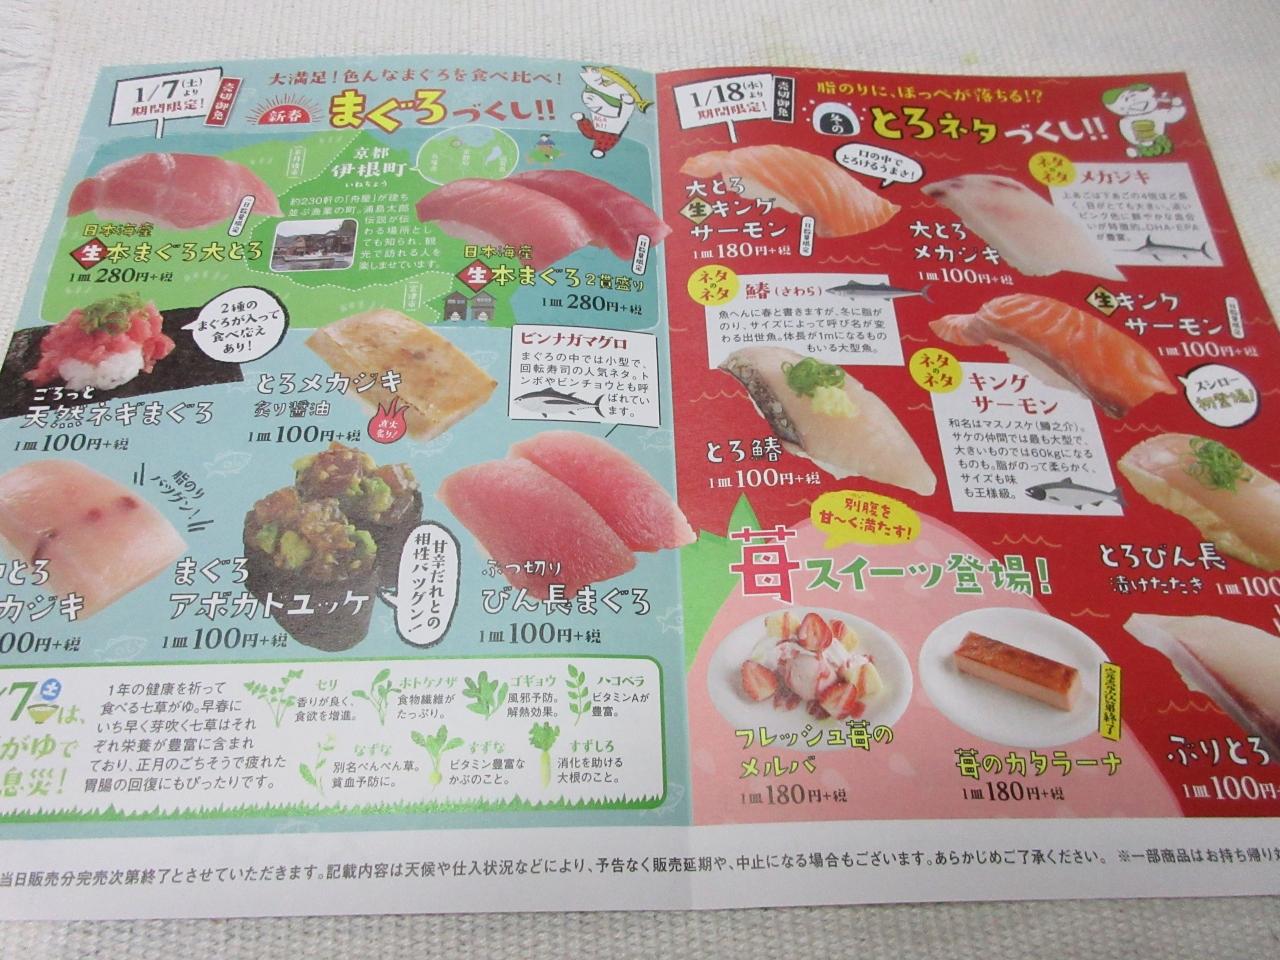 1/7(土)より
期間限定!
売切御免
大満足!色んなまぐろを食べ比べ!
新春
まぐろづくし!!
京都
伊根町
いねちょう
約230軒の「舟屋」が建ち
並ぶ漁業の町。浦島太郎
伝説が伝
わる場所とし
ても知られ、観
光で訪れる人を
楽しませています。
一日数量限定
日本海産
生本まぐろ大とろ
1皿280円+税
一日数量限定
日本海産
生本まぐろ2貫盛り
1皿280円+税
2種の
まぐろが入って
食べ応え
あり!
ごろっと
天然ネギまぐろ
1皿100円+税
とろメカジキ
炙り醤油
1皿100円+税
直火
炙り!
ビンナガマグロ
まぐろの中では小型で、
回転寿司の人気ネタ。ト
ンボやビンチョウとも呼
ばれてい
ます。
脂のり
バツグン!
とろ
カジキ
00円+税
まぐろ
アボカドユッケ
1皿100円+税
甘辛だれとの
相性バツグン!
ぶつ切り
びん長まぐろ
1皿100円+税
7土
は、
がゆで
息災!
1年の健康を祈って
食べる七草がゆ。早春に
いち早く芽吹く七草はそれ
ぞれ栄養が豊富に含まれ
ており、正月のごちそうで疲れた
胃腸の回復にもぴったりです。
セリ
香りが良く、
食欲を増進。
ホトケノザ
食物繊維が
たっぷり。
ゴギョウ
風邪予防。
解熱効果。
ハコベラ
ビタミンAが
豊富。
なずな
別名ぺんぺん草。
貧血予防に。
すずな
ビタミン豊富な
かぶのこと。
すずしろ
消化を助ける
大根のこと。
1/18(水)より
期間限定!
売切御免
脂のりに、ほっぺが落ちる!?
冬の
とろネタづくし!!
口の中で
とろけるうまさ!
大とろ
生キング
サーモン
1皿180円+税
一日数量限定
大とろ
メカジキ
1皿100円+税
ネタのネタ
メカジキ
上あごは下あごの4倍ほど長
く、目がとても大きい。濃い
ピンク色に鮮やかな血合
いが特徴的。DHA・EPA
が豊富。
ネタのネタ
鰆(さわら)
魚へんに春と書きますが、冬に脂が
のり、サイズによって呼び名が変
わる出世魚。体長が1mになるもの
もいる大型魚。
生キング
サーモン
1皿100円+税
一日数量限定
スシロー
初登場!
ネタのネタ
キング
サーモン
和名はマスノスケ(鱒之介)。
サケの仲間では最も大型で、
大きいものでは60kgになる
ものも。脂がのって柔らかく、
サイズも味
も王様級。
とろ鰆
1皿100円+税
とろびん長
漬けたたき
1皿100
別腹を
甘〜く満たす!
苺スイーツ登場!
フレッシュ苺の
メルバ
1皿180円+税
苺のカタラーナ
1皿180円+税
完売次第終了
ぶりとろ
1皿100円+
当日販売分完売次第終了とさせていただきます。記載内容は天候や仕入状況などにより、予告なく販売延期や、中止になる場合もございます。あらかじめご了承ください。 ※一部商品はお持ち帰り対